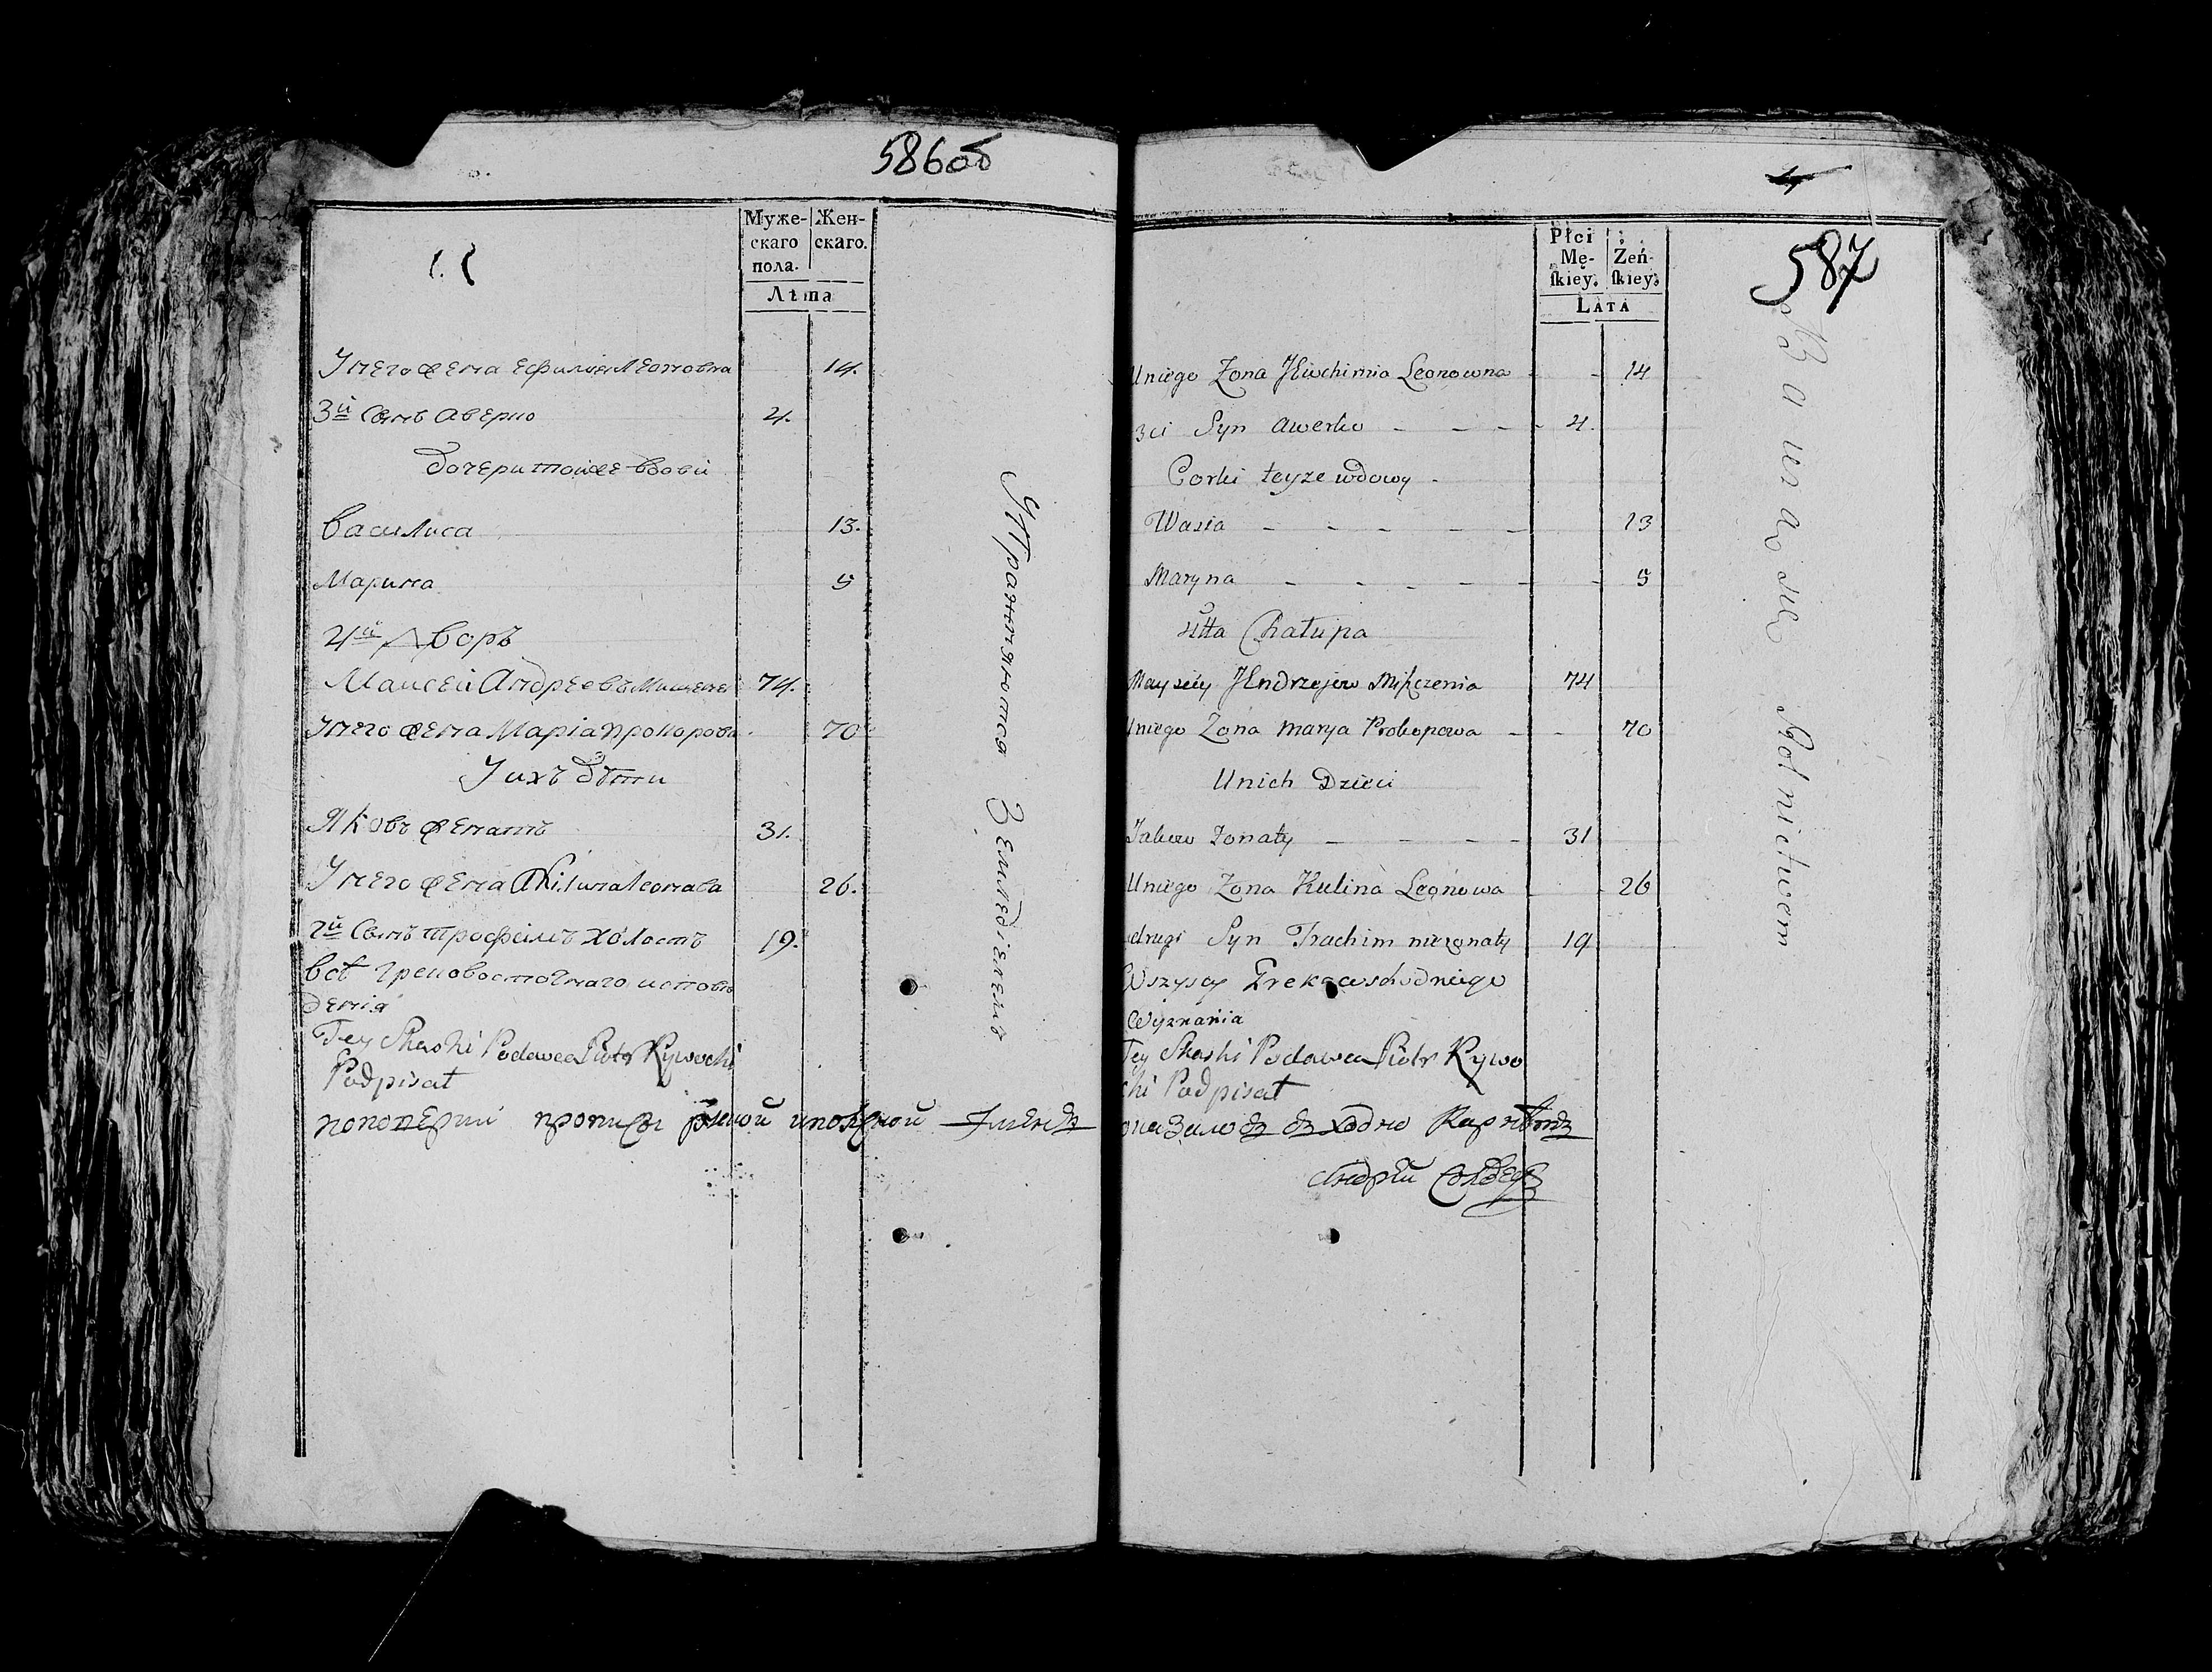 586об
Муже-
скаго
пола.
Жен-
скаго.
Лѣта
У него жена Ефимія Леоновна 14.
3й Сынъ Аверко 4.
Дочери тойже вдовы
Василиса 13.
Марина 5
4й Дворъ
Маисей Андреевъ 74.
У него жена Марія Прокопова 70
У ихъ дѣти
Яковъ женатъ 31.
У него жена Акилина Леонава 26.
2й Сынъ Трофимъ холостъ 19.
Всѣ Грековосточнаго исповѣ
денія
Tey Skaski Podawca Piotr Rywocki
Podpisał
Упражняются Земледѣлемъ
4
587
Płci
Mę-
ſkiey.
Żeń-
ſkiey.
LATA
U niego Zona Hiuchimia Leonowna - - 14
3ci Syn Awerko - - - - 4.
Corki teyze wdowy -
Wasia - - - - - 13
Maryna - - - - - - 5
4ta Chałupa
Maysiey Andrzejew Miszczenia 74
U niego Zona Marya Prokopowa - - 70
U nich Dzieci
Jakow Zonaty - - - - 31
U niego Zona Kulina Leonowa - - 26
drugi Syn Trachim niezonaty 19
Wszyscy Grekowschodniego
Wyznania
Tey Skaski Podawca Piotr Rywo
cki Podpisał
Андрей
Rolnictwem